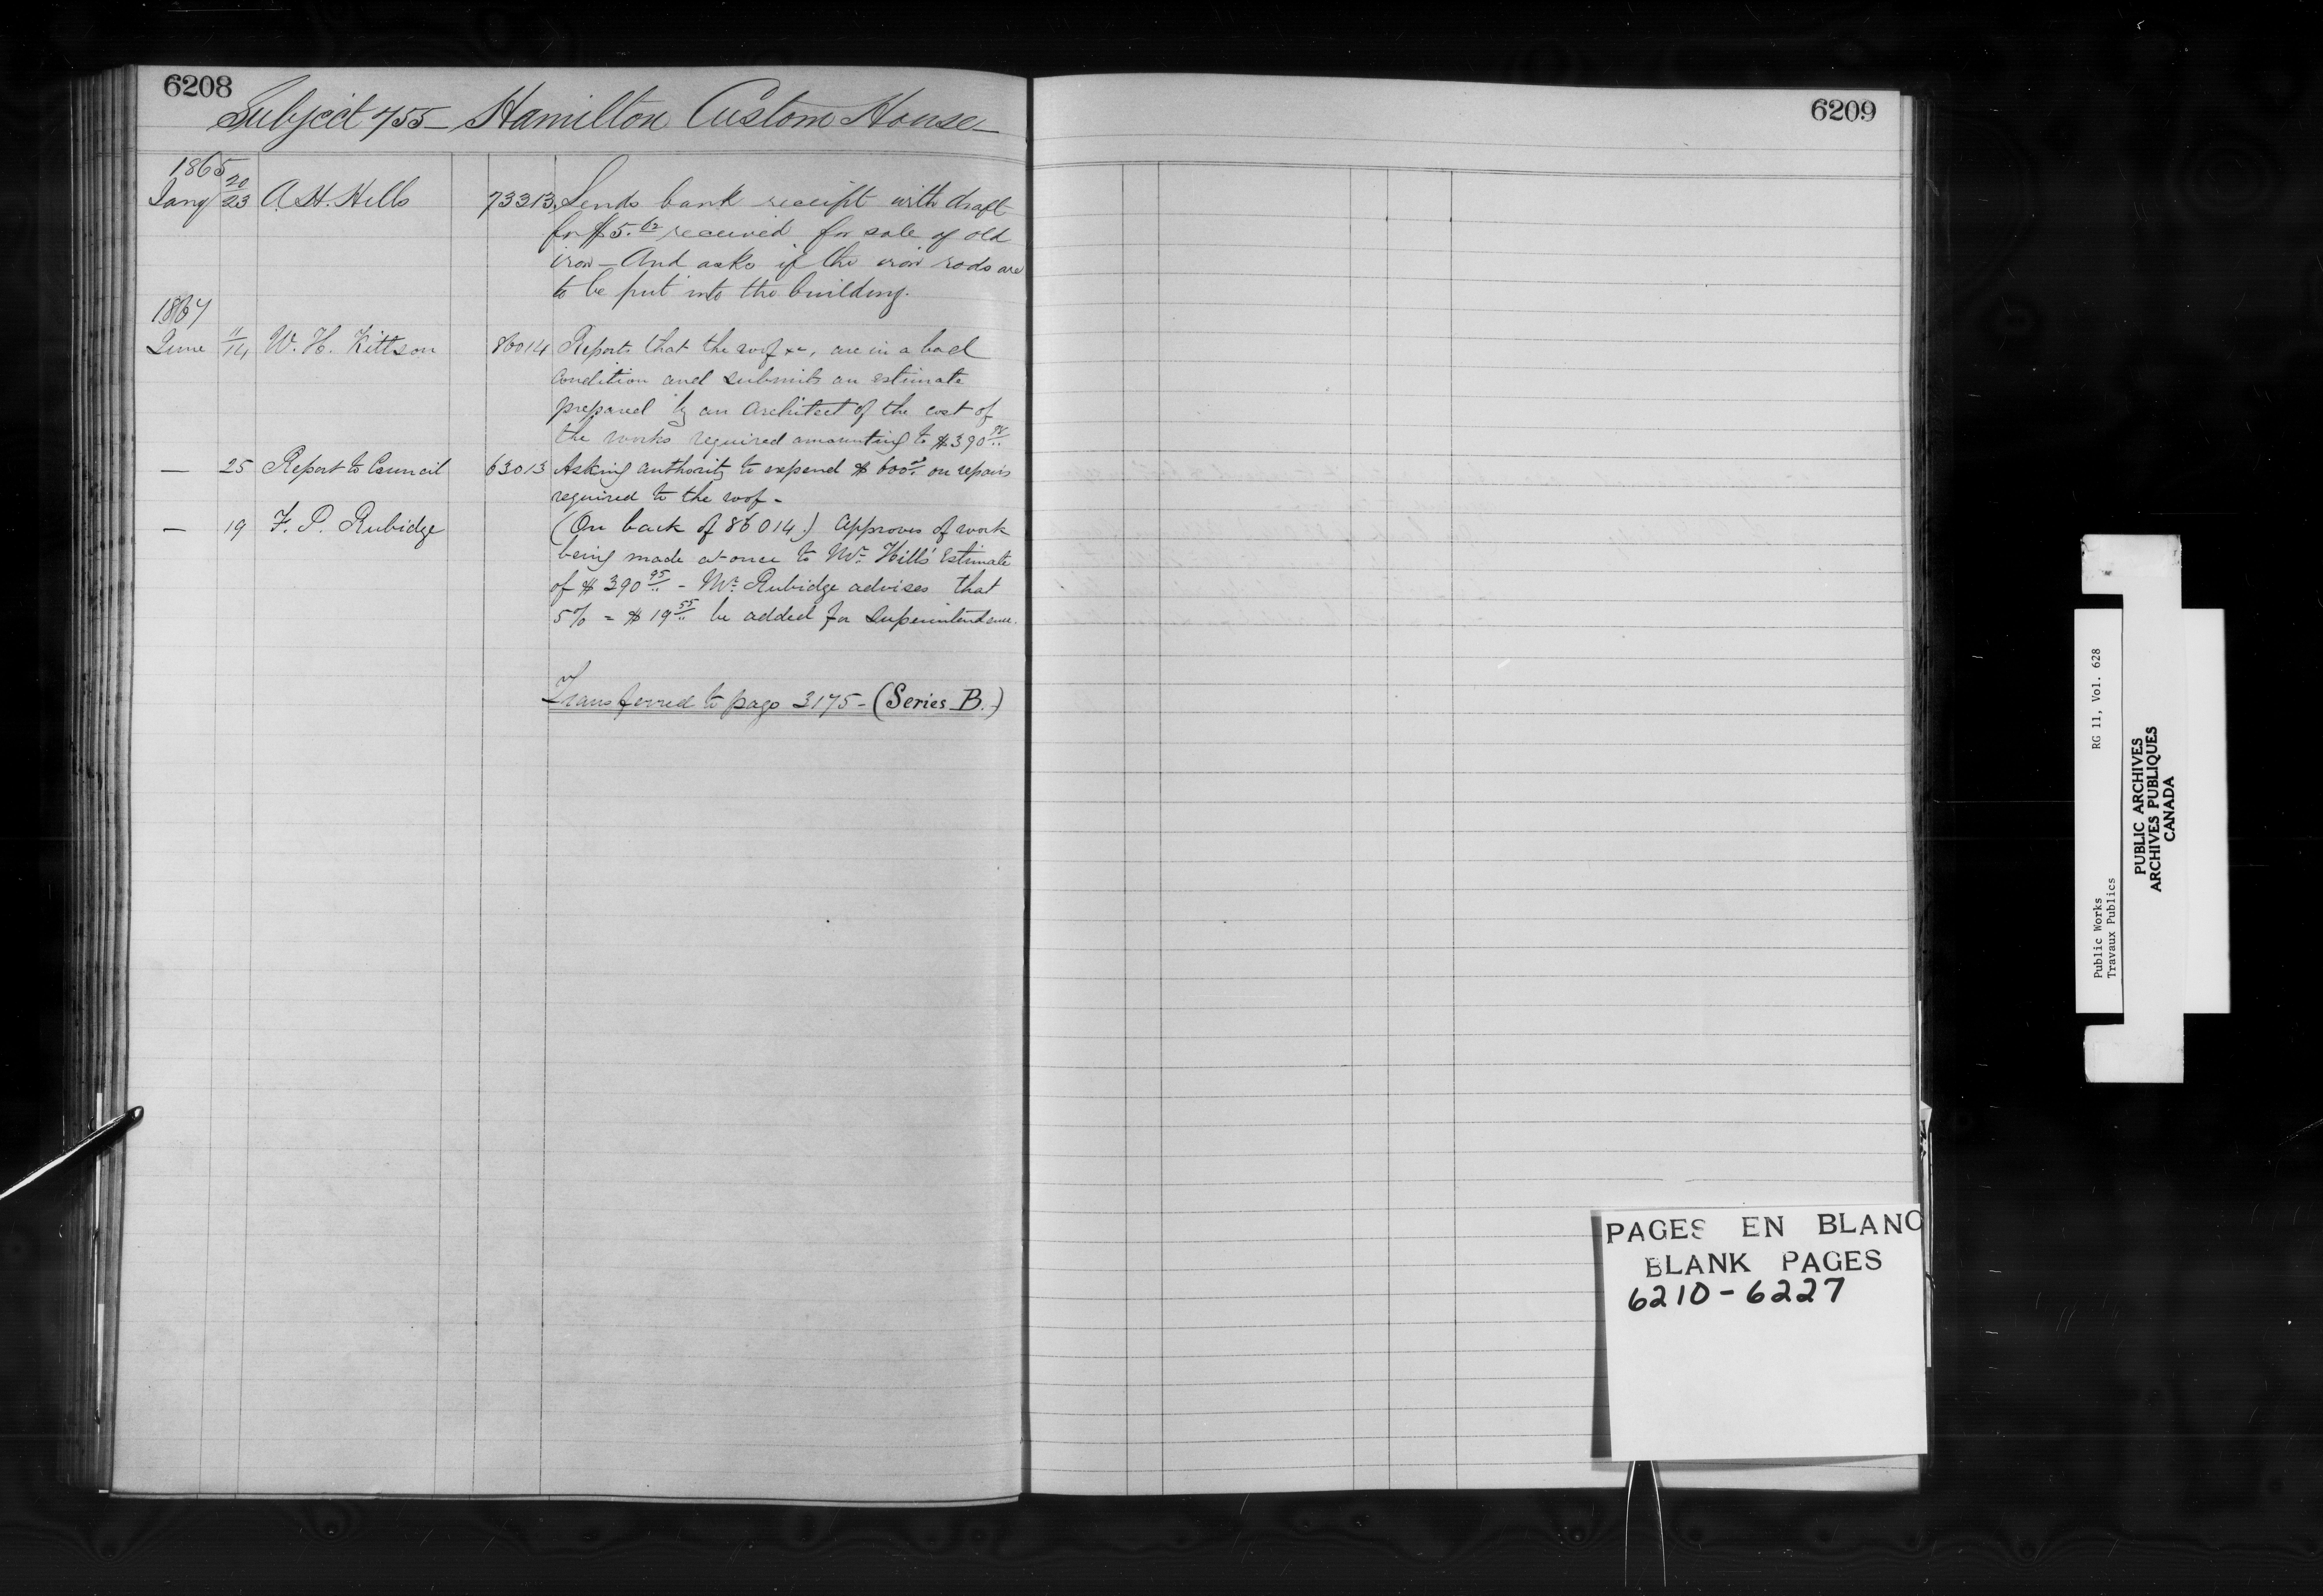 6208
Subject 755 - Hamilton Custom House -
1865
Jany 20/23 A. H. Hills 73313 Sends bank receipt with draft
for $5.02 received for sale of old
iron - And asks if the iron rods are
to be put into the building.
1867
June 11/14 W. H. Kittson 86014 Reports that the roof &c, are in a bad
condition and submits an estimate
prepared by an Architect of the cost of
the works required amounting to $390
— 25 Report to Council 63013 Asking authority to expend $600 on repairs
required to the roof -
— 19 F. P. Rubidge (On back of 86014) Approves of work
being made at once to Mr. Hills' Estimate
of $390.95 - Mr. Rubidge advises that
5% = $19.55 be added for Superintendence.
Transferred to page 3175 - (Series B.)
6209
PAGES EN BLANC
BLANK PAGES
6210-6227
Public Works RG 11, Vol. 628
Travaux Publics
PUBLIC ARCHIVES
ARCHIVES PUBLIQUES
CANADA